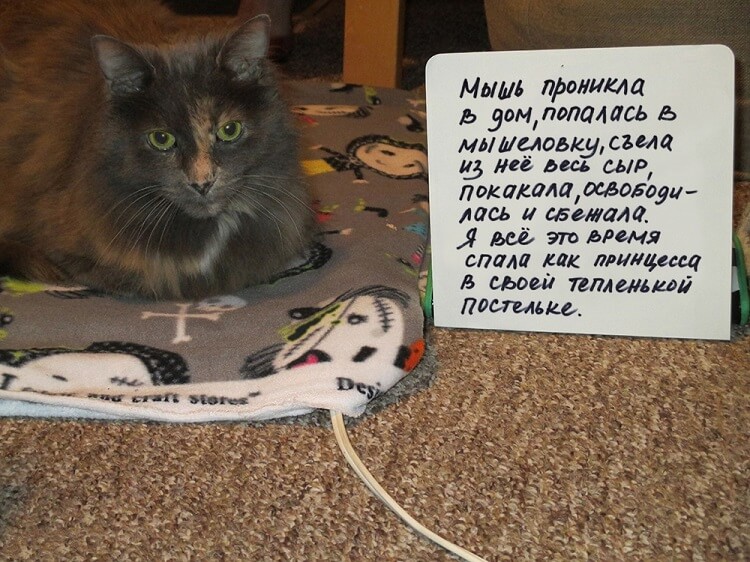 Мышь проникла
в дом, попалась в
мышеловку, съела
из неё весь сыр,
покакала, освободи-
лась и сбежала.
Я всё это время
спала как принцесса
в своей тепленькой
постельке.
and Craft Stores
Des